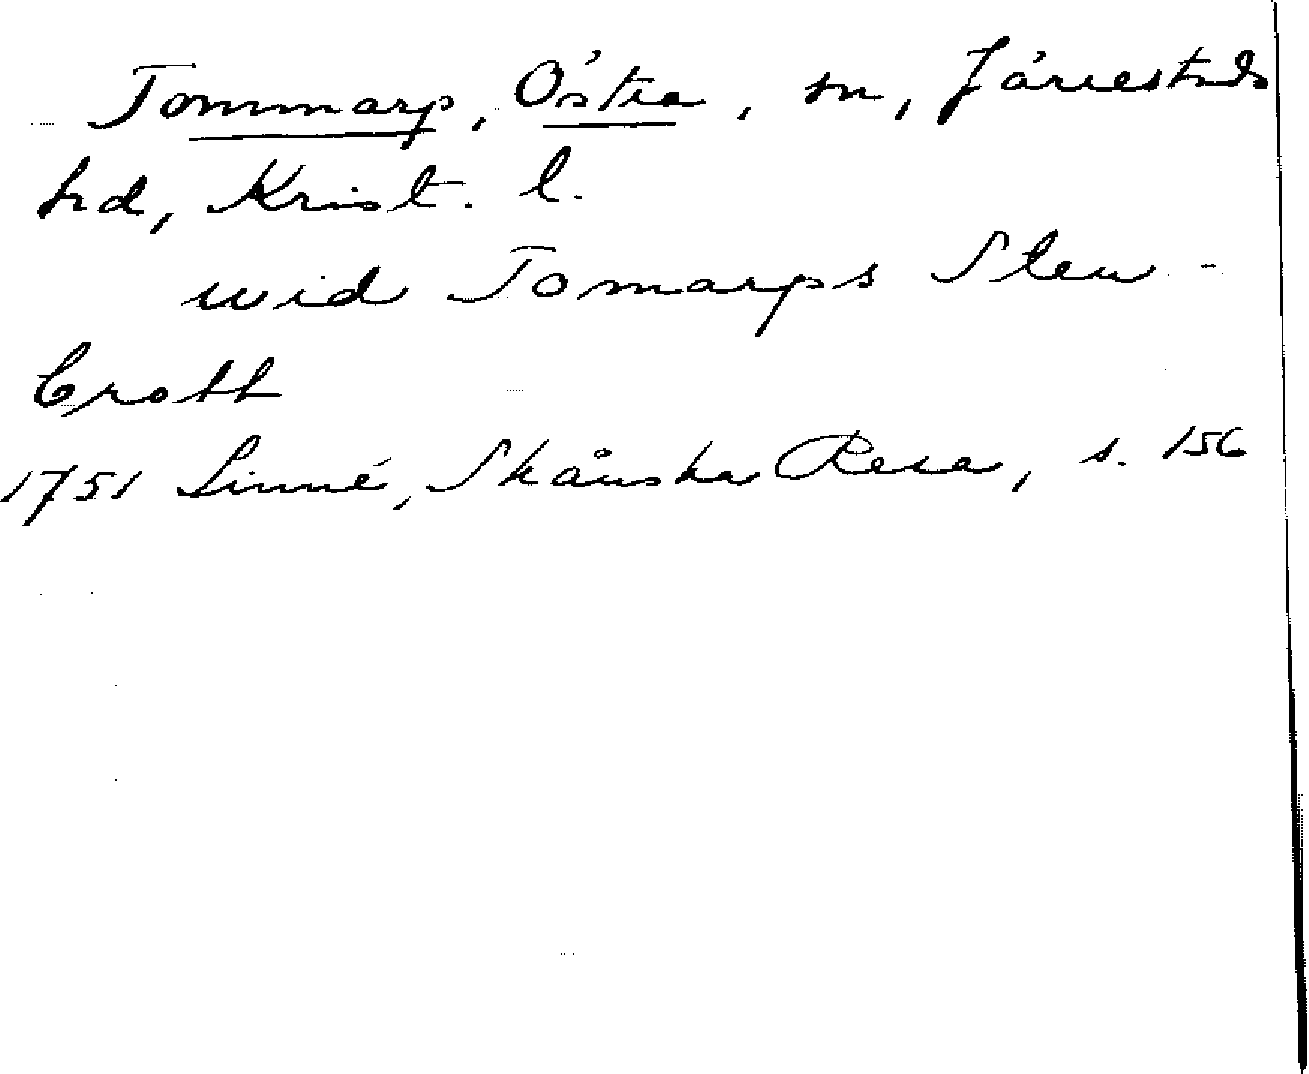 Tommarp, Östra, sn, Järrestads
hd, Krist. l.
wid Tomarps Sten-
Crott
1751 Linné, Skånska Resa, s. 156